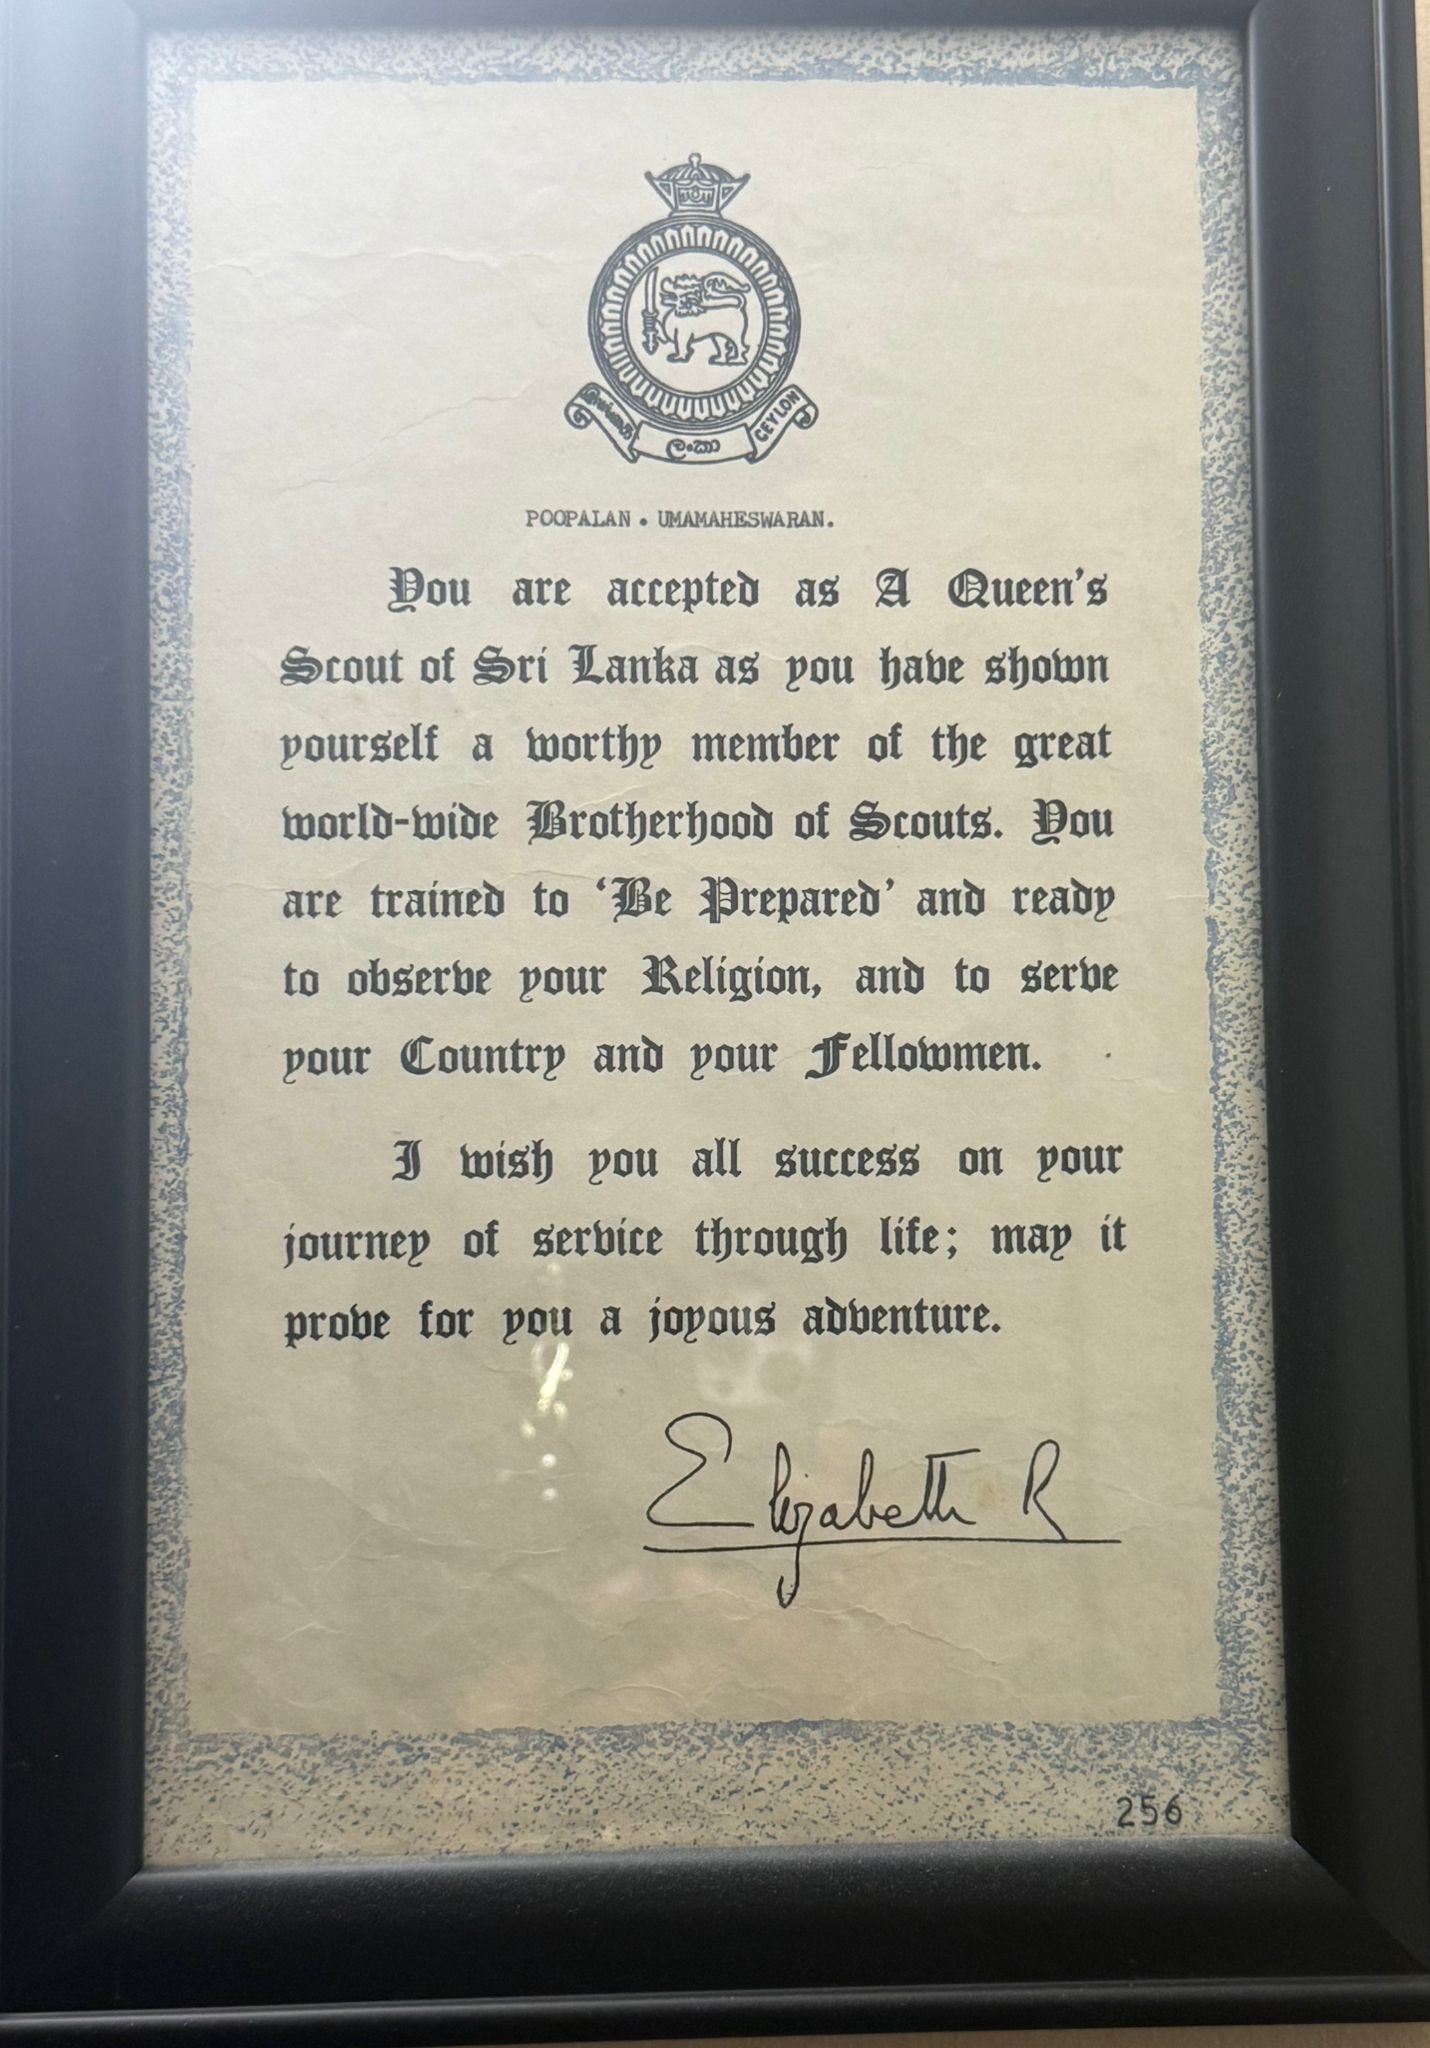 இலங்கை
ලංකා
CEYLON
POOPALAN . UMAMAHESWARAN.
You are accepted as A Queen's
Scout of Sri Lanka as you have shown
yourself a worthy member of the great
world-wide Brotherhood of Scouts. You
are trained to ‘Be Prepared’ and ready
to observe your Religion, and to serve
your Country and your Fellowmen.
I wish you all success on your
journey of service through life; may it
prove for you a joyous adventure.
Elizabeth R
256